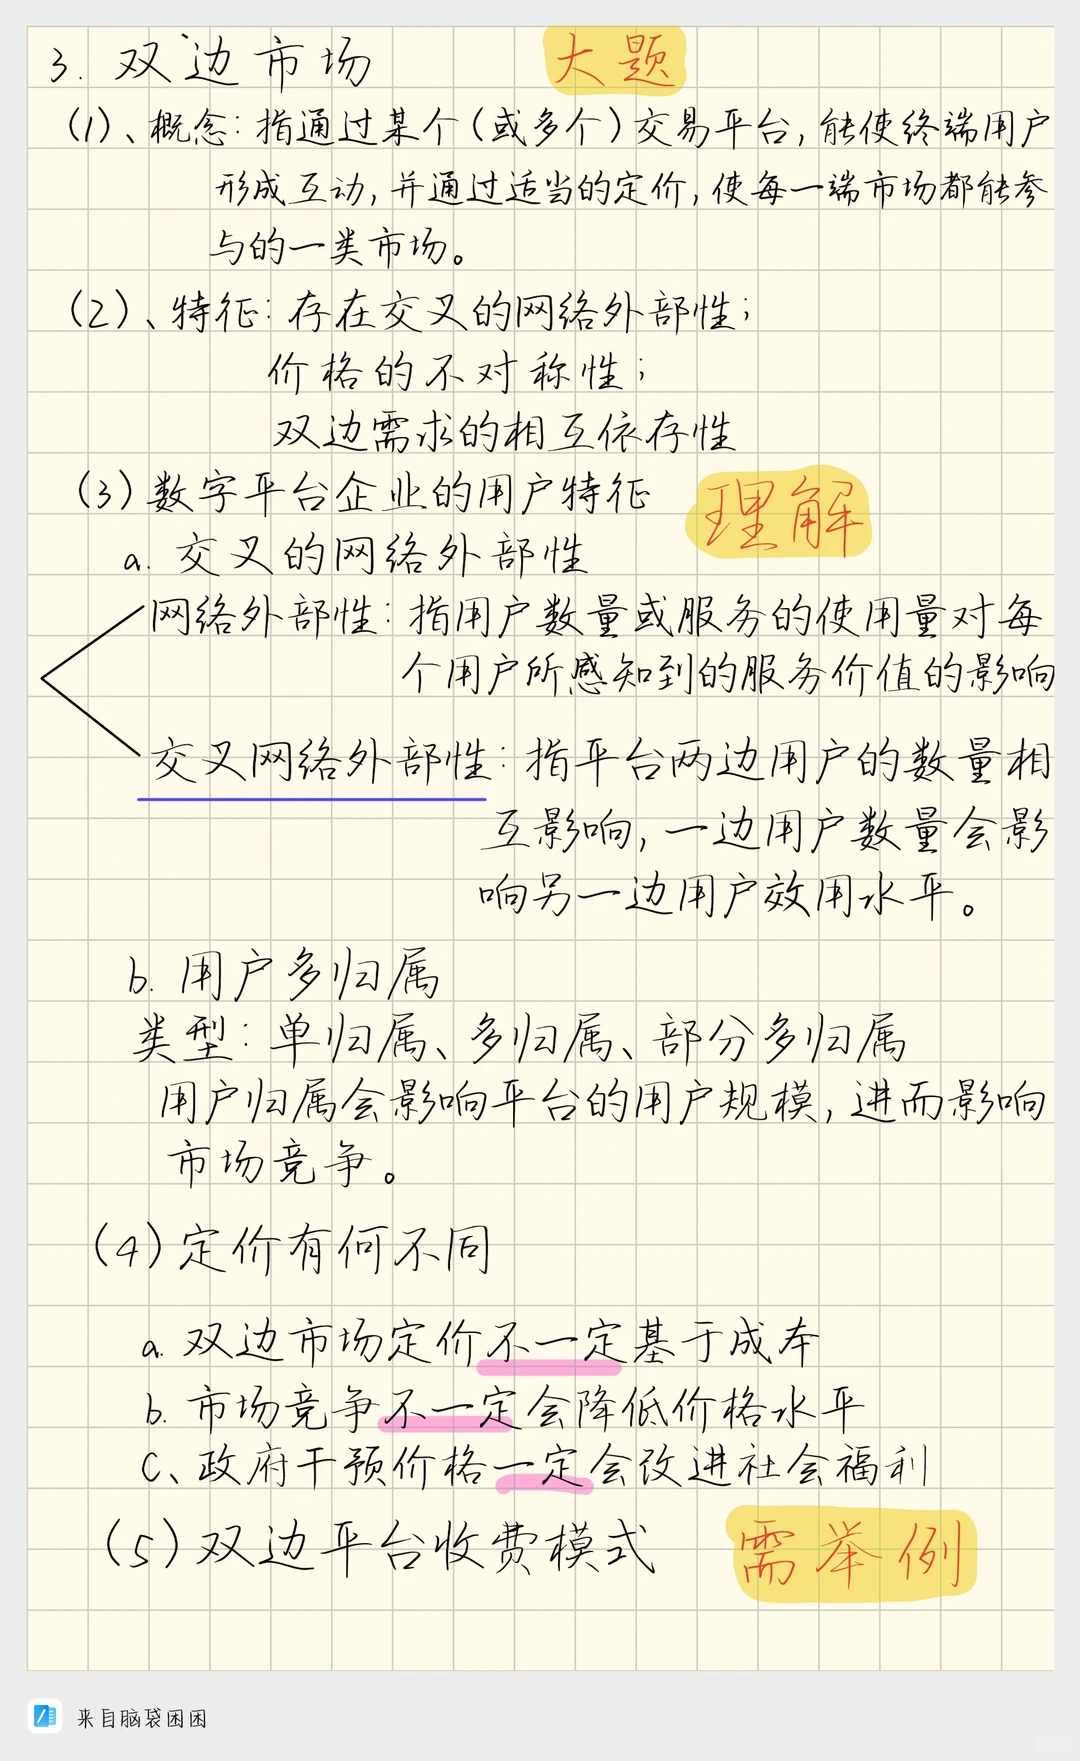 3. 双边市场 大题
(1)、概念: 指通过某个(或多个)交易平台, 能使终端用户
形成互动, 并通过适当的定价, 使每一端市场都能参
与的一类市场。
(2)、特征: 存在交叉的网络外部性;
价格的不对称性;
双边需求的相互依存性
(3) 数字平台企业的用户特征 理解
a. 交叉的网络外部性
网络外部性: 指用户数量或服务的使用量对每
个用户所感知到的服务价值的影响
交叉网络外部性: 指平台两边用户的数量相
互影响, 一边用户数量会影
响另一边用户效用水平。
b. 用户多归属
类型: 单归属、多归属、部分多归属
用户归属会影响平台的用户规模, 进而影响
市场竞争。
(4) 定价有何不同
a. 双边市场定价不一定基于成本
b. 市场竞争不一定会降低价格水平
C、政府干预价格一定会改进社会福利
(5) 双边平台收费模式 需举例
来自脑袋困困